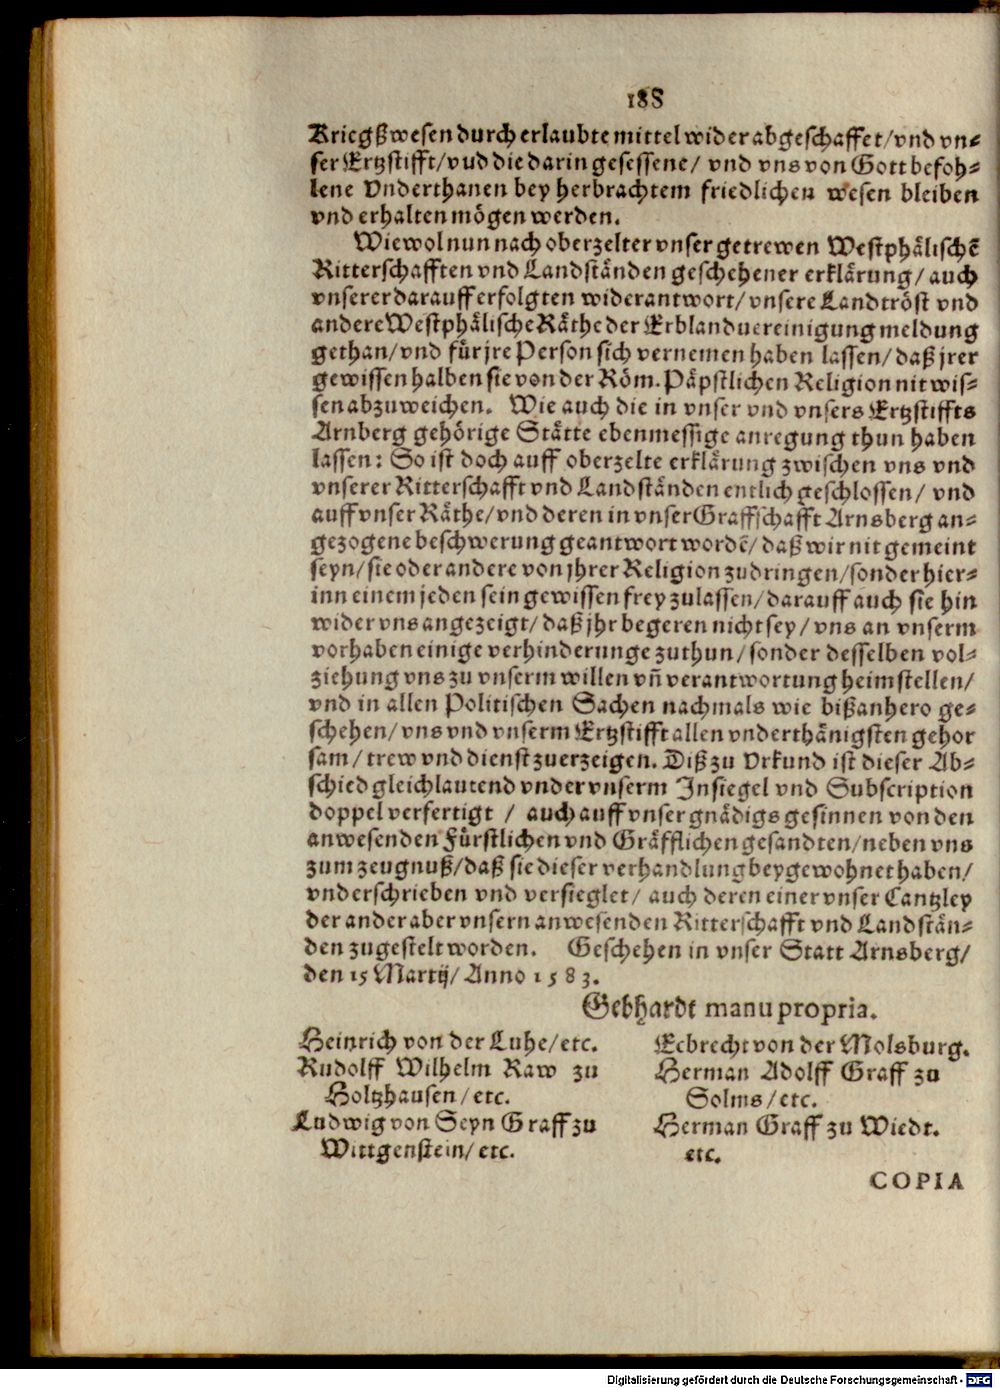 188
Kriegßwesen durch erlaubte mittel wider abgeschaffet/ vnd vn-
ser Ertzstifft/ vud die darin gesessene/ vnd vns von Gott befoh-
lene Vnderthanen bey herbrachtem friedlichen wesen bleiben
vnd erhalten mögen werden.
Wiewol nun nach oberzelter vnser getrewen Westphälischē
Ritterschafften vnd Landständen geschehener erklärung/ auch
vnserer darauff erfolgten widerantwort/ vnsere Landtröst vnd
andere Westphälische Räthe der Erblanduereinigung meldung
gethan/ vnd für jre Person sich vernemen haben lassen/ daß jrer
gewissen halben sie von der Röm. Päpstlichen Religion nit wis-
sen abzuweichen. Wie auch die in vnser vnd vnsers Ertzstiffts
Arnberg gehörige Stätte ebenmessige anregung thun haben
lassen: So ist doch auff oberzelte erklärung zwischen vns vnd
vnserer Ritterschafft vnd Landständen entlich geschlossen/ vnd
auff vnser Räthe/ vnd deren in vnser Graffschafft Arnsberg an-
gezogene beschwerung geantwort wordē/ daß wir nit gemeint
seyn/ sie oder andere von jhrer Religion zudringen/ sonder hier-
inn einem jeden sein gewissen frey zulassen/ darauff auch sie hin
wider vns angezeigt/ daß jhr begeren nicht sey/ vns an vnserm
vorhaben einige verhinderunge zuthun/ sonder desselben vol-
ziehung vns zu vnserm willen vn̄ verantwortung heimstellen/
vnd in allen Politischen Sachen nachmals wie bißanhero ge-
schehen/ vns vnd vnserm Ertzstifft allen vnderthänigsten gehor
sam/ trew vnd dienst zuerzeigen. Diß zu Vrkund ist dieser Ab-
schied gleichlautend vnder vnserm Insiegel vnd Subscription
doppel verfertigt / auch auff vnser gnädigs gesinnen von den
anwesenden Fürstlichen vnd Gräfflichen gesandten/ neben vns
zum zeugnuß/ daß sie dieser verhandlung beygewohnet haben/
vnderschrieben vnd versieglet/ auch deren einer vnser Cantzley
der ander aber vnsern anwesenden Ritterschafft vnd Landstän-
den zugestelt worden. Geschehen in vnser Statt Arnsberg/
den 15 Martij/ Anno 1583.
Gebhardt manu propria.
Heinrich von der Luhe/ etc.
Rudolff Wilhelm Raw zu
Holtzhausen/ etc.
Ludwig von Seyn Graff zu
Wittgenstein/ etc.
Ecbrecht von der Molsburg.
Herman Adolff Graff zu
Solms/ etc.
Herman Graff zu Wiedt.
etc.
COPIA
Digitalisierung gefördert durch die Deutsche Forschungsgemeinschaft - DFG